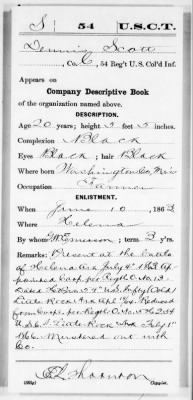 S | 54 | U.S.C.T.
Dennis Scott
, Co. C, 54 Reg't U.S. Col'd Inf.
Appears on
Company Descriptive Book
of the organization named above.
DESCRIPTION.
Age 20 years; height 5 feet 5 inches.
Complexion Black
Eyes Black; hair Black
Where born Washington Co, Miss
Occupation Farmer
ENLISTMENT.
When June 10, 1863
Where Helena
By whom Emerson; term 3 y'rs.
Remarks: Present at the battle
of Helena Ark July 4" 1863 Ap-
pointed Corp. per Regtl O. No. 13
Little Rock Ark Apl Reduced
from Corp. per Regtl O. No.
Little Rock Ark July 1"
1866. Mustered out with
Co.
Shannon
Copyist.